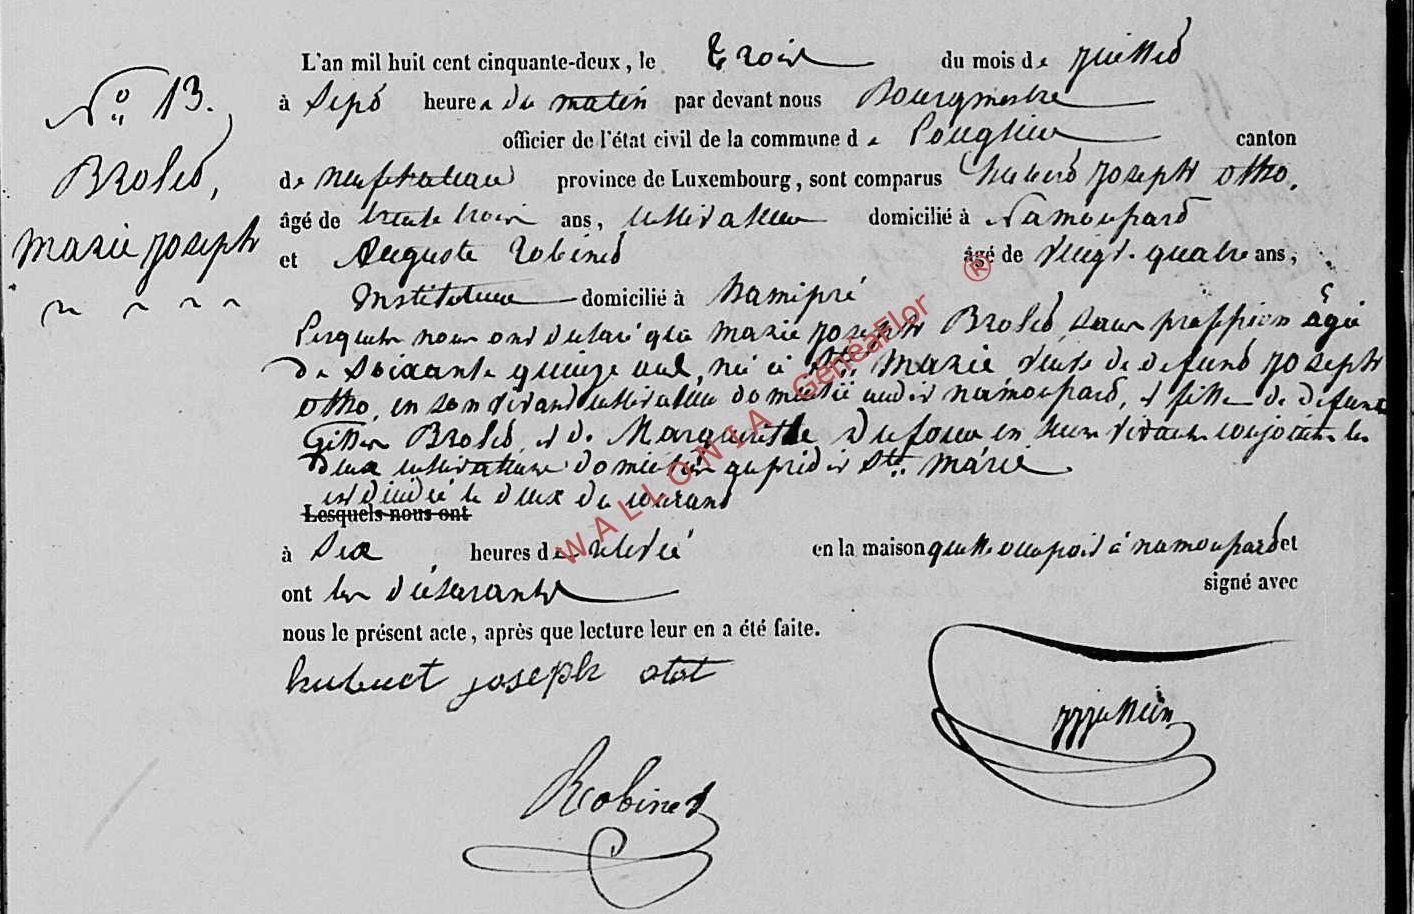 N° 13.
Brolet,
Marie Joseph
L'an mil huit cent cinquante-deux, le trois du mois de juillet
à Sept heures du matin par devant nous Bourgmestre
officier de l'état civil de la commune de Longlier canton
de neufchateau province de Luxembourg, sont comparus hubert joseph otto,
âgé de trente trois ans, cultivateur domicilié à Namoussard
et Auguste Robinet âgé de vingt-quatre ans,
Instituteur domicilié à hamipré
Lesquels nous ont declaré que marie joseph Brolet, sans profession âgée
de soixante quinze ans, née à Ste Marie veuve de defunt joseph
otto, en son vivant cultivateur domicilié audit namoussard, et fille de defunt
Gillen Brolet, et de Marguerite en leur vivant conjoints les
deux cultivateurs domiciliés Ste Marie
est décédée le deux du courant
Lesquels nous ont
à Six heures de relevée en la maison quelle occupait à namoussard et
ont les déclarants signé avec
nous le présent acte, après que lecture leur en a été faite.
hubert joseph otot
Robinet
WALLONIA GénéaFlor ®